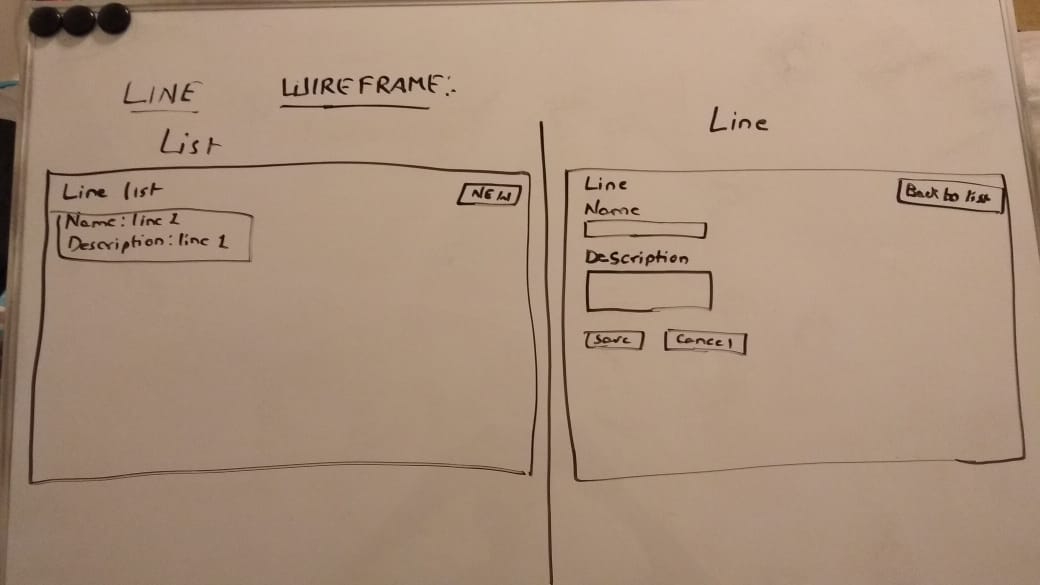 LINE WIREFRAME:-
List
Line list
NEW
Name: line 1
Description: line 1
Line
Line
Back to list
Name
Description
Save
Cancel